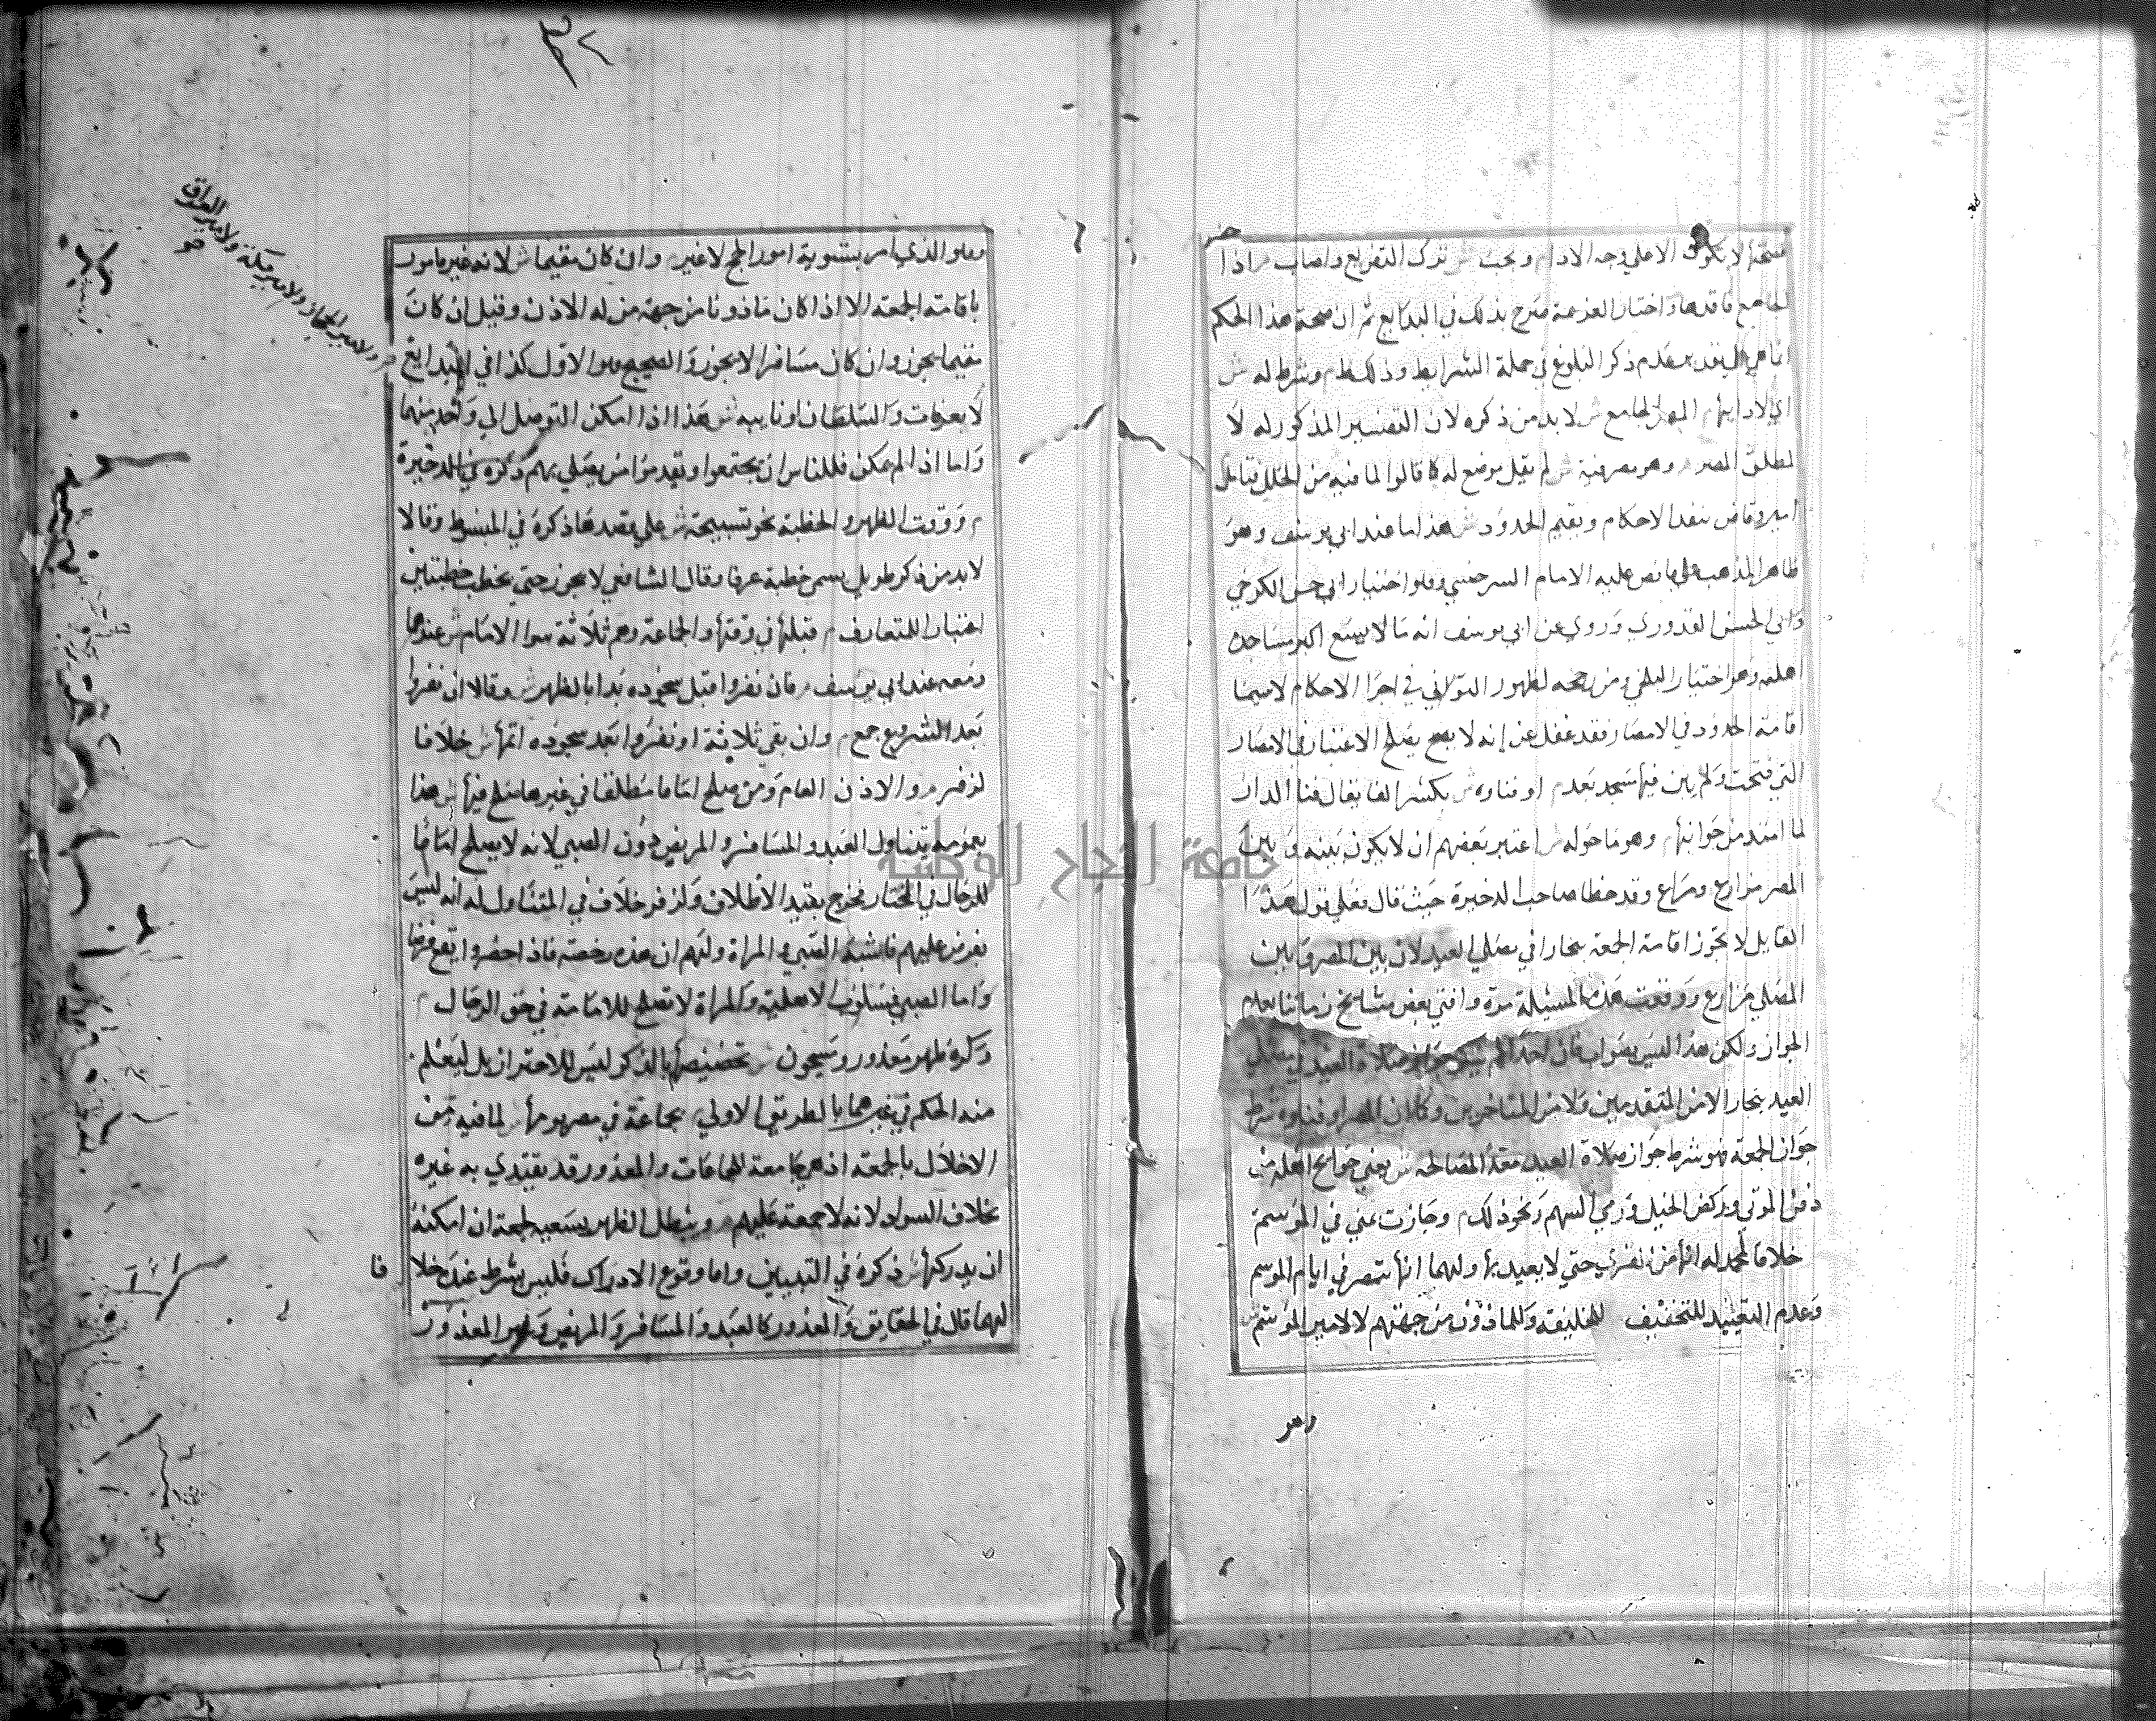 الا علي وجه الاداء وتجب ش ترك التفريع واصاب م اذا
الجامع فاقدها واختار العزيمة صرح بذلك في البدايع ثم ان صحة هذا الحكم
ذكر البلوغ في جملة الشرايط وذلك م وشرط له ش
اي لادايها م المصر الجامع ش لا بد من ذكره لان التفسير المذكور له لا
لمطلق المصر م وهو مصر فيه ش لم يقل موضع له كما قالوا لما فيه من الخلل فتامل
امير وقاض ينفذ الاحكام ويقيم الحدود ش هذا ما عند ابي يوسف وهو
ظاهر المذهب علي ما نص عليه الامام السرخسي وهو اختيار ابي حسن الكرخي
وابي الحسن القدوري وروي عن ابي يوسف انه ما لا يسع اكبر مساجده
اهله وهو اختيار البلخي ومن رجحه لظهور التواني في اجرا الاحكام لاسيما
اقامة الحدود في الامصار فقد غفل عن انه لا يصح يصلح الاعتبار في الامصار
التي فتحت ولم يبن فيها مسجد بعد م او فناوه ش بكسر الفا يقال فنا الدار
لما امتد من جوانبها م وهو ما حوله ش اعتبر بعضهم ان لا يكون بينه وبين
المصر مزارع ومراع وقد خطا صاحب الذخيرة حيث قال فعلي قول هذا
القايل لا تجوز اقامة الجمعة ببخارا في مصلي العيد لان بين المصر وبين
المصلي مزارع ووقعت هذه المسيلة مرة وافتي بعض مشايخ زماننا بعدم
الجواز ولكن هذا ليس بصواب فان احدا لم ينكر جواز صلاة العيد في مصلي
العيد ببخارا لا من المتقدمين ولا من المتاخرين وكما ان المصر او فناوه شرط
جواز الجمعة فهو شرط جواز صلاة العيد معدا لمصالحه ش يعني حوايج اهله من
دفن الموتي وركض الخيل ورمي السهم ونحو ذلك م وجازت بمني في الموسم
خلافا لمحمد له انها من القري حتي لا يعيد بها ولهما انها تتمصر في ايام الموسم
وعدم التعييد للتخفيف للخليفة وللماذون من جهتهم لا لامير الموسم ش
وهو
وهو الذي امر بتسوية امور الحج لا غير م وان كان مقيما ش لانه غير مامور
باقامة الجمعة الا اذا كان ماذونا من جهة من له الاذن وقيل ان كان
مقيما يجوز وان كان مسافرا لا يجوز والصحيح هو الاول كذا في البدايع
م ولامير الحجاز ولامير مكة ولامير العراق
لا بعرفات والسلطان او نايبه ش هذا اذا امكن التوصل الي واحد منهما
واما اذا لم يمكن فللناس ان يجتمعوا ويقدموا من يصلي بهم ذكره في الذخيرة
م ووقت الظهر والخطبة نحو تسبيحة ش علي قصدها ذكره في المبسوط وقالا
لا بد من ذكر طويل يسمي خطبة عرفا وقال الشافعي لا يجوز حتي يخطب خطبتين
اعتبارا للمتعارف م قبلها في وقتها والجماعة وهم ثلاثة سوا الامام ش عندهما
ومعه عند ابي يوسف م فان نفروا قبل سجوده بدا بالظهر ش وقالا ان نفروا
بعد الشروع جمع م وان بقي ثلاثة او نفروا بعد سجوده اتمها ش خلافا
لزفر م والاذن العام ومن صلح اماما مطلقا في غيرها صلح فيها ش هذا
بعمومه يتناول العبد والمسافر والمريض دون الصبي لانه لا يصلح اماما
للرجال في المختار فخرج بقيد الاطلاق ولزفر خلاف في المتناول له انه ليس
بفرض عليهم فاشبه الصبي والمراة ولهم ان هذه رخصة فاذا حضروا يقع فرضا
واما الصبي فمسلوب الاهلية والمراة لا تصلح للامامة في حق الرجال م
وكره ظهر معذور ومسجون ش تخصيصها بالذكر ليس للاحتراز بل ليعلم
منه الحكم في غيرهما بالطريق الاولي م بجماعة في مصر يومها ش لما فيه من
الاخلال بالجمعة اذ هي جامعة للجماعات والمعذور قد يقتدي به غيره
بخلاف السواد لانه لا جمعة عليهم م ويبطل الظهر بسعيه لجمعة ان امكنه
ان يدركها ش ذكره في التبيين واما وقوع الادراك فليس بشرط عنده خلافا
لهما قال في الحقايق والمعذور كالعبد والمسافر والمريض وغير المعذور